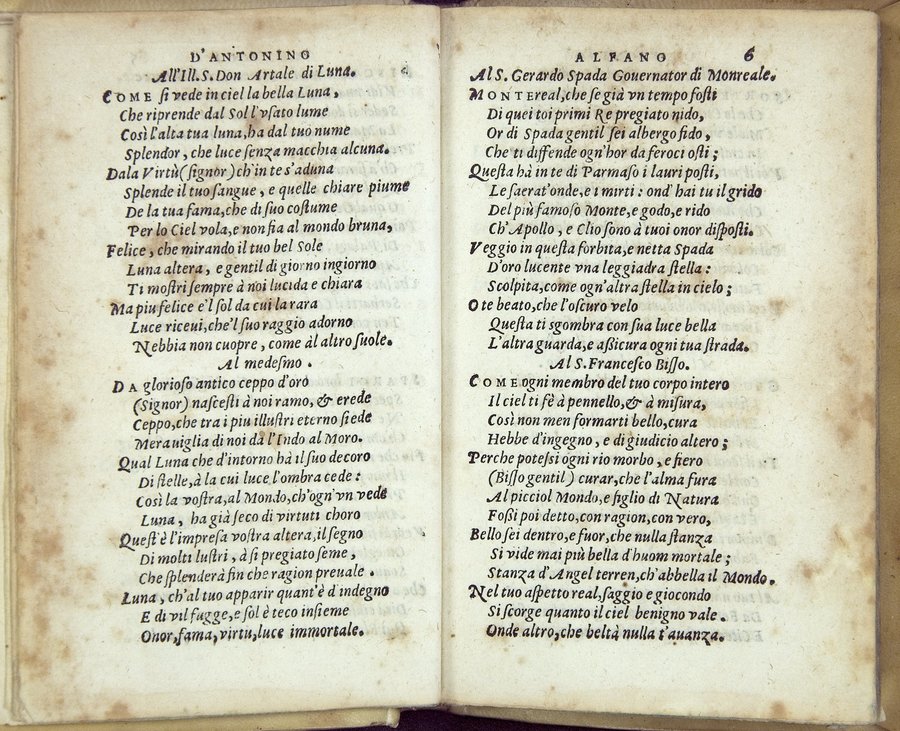 D'ANTONINO
All'Ill. S. Don Artale di Luna.
COME si vede in ciel la bella Luna,
Che riprende dal Sol l'vsato lume
Così l'alta tua luna, ha dal tuo nume
Splendor, che luce senza macchia alcuna.
Dala Virtù (signor) ch'in te s'aduna
Splende il tuo sangue, e quelle chiare piume
De la tua fama, che di suo costume
Per lo Ciel vola, e non fia al mondo bruna,
Felice, che mirando il tuo bel Sole
Luna altera, e gentil di giorno ingiorno
Ti mostri sempre à noi lucida e chiara
Ma piu felice e'l sol da cui la rara
Luce riceui, che'l suo raggio adorno
Nebbia non cuopre, come àl altro suole.
Al medesmo.
DA glorioso antico ceppo d'oro
(Signor) nascesti à noi ramo, & erede
Ceppo, che tra i piu illustri eterno siede
Merauiglia di noi da l'Indo al Moro.
Qual Luna che d'intorno hà il suo decoro
Di stelle, à la cui luce l'ombra cede:
Così la vostra, al Mondo, ch'ogn'vn vede
Luna, ha già seco di virtuti choro
Quest'è l'impresa vostra altera, il segno
Di molti lustri, à sì pregiato seme,
Che splenderà fin che ragion preuale.
Luna, ch'al tuo apparir quant'è d'indegno
E di vil fugge, e sol è teco insieme
Onor, fama, virtu, luce immortale.
ALFANO 6
Al S. Gerardo Spada Gouernator di Monreale.
MONTEreal, che se già vn tempo fosti
Di quei toi primi Re pregiato nido,
Or di Spada gentil sei albergo fido,
Che ti diffende ogn'hor da feroci osti;
Questa hà in te di Parmaso i lauri posti,
Le sacrat'onde, e i mirti: ond'hai tu il grido
Del più famoso Monte, e godo, e rido
Ch'Apollo, e Clio sono à tuoi onor disposti.
Veggio in questa forbita, e netta Spada
D'oro lucente vna leggiadra stella:
Scolpita, come ogn'altra stella in cielo;
O te beato, che l'oscuro velo
Questa ti sgombra con sua luce bella
L'altra guarda, e assicura ogni tua strada.
Al S. Francesco Bisso.
COME ogni membro del tuo corpo intero
Il ciel ti fè à pennello, & à misura,
Così non men formarti bello, cura
Hebbe d'ingegno, e di giudicio altero;
Perche potessi ogni rio morbo, e fiero
(Bisso gentil) curar, che l'alma fura
Al picciol Mondo, e figlio di Natura
Fossi poi detto, con ragion, con vero,
Bello sei dentro, e fuor, che nulla stanza
Si vide mai più bella d'huom mortale;
Stanza d'Angel terren, ch'abbella il Mondo.
Nel tuo aspetto real, saggio e giocondo
Si scorge quanto il ciel benigno vale.
Onde altro, che beltà nulla t'auanza.